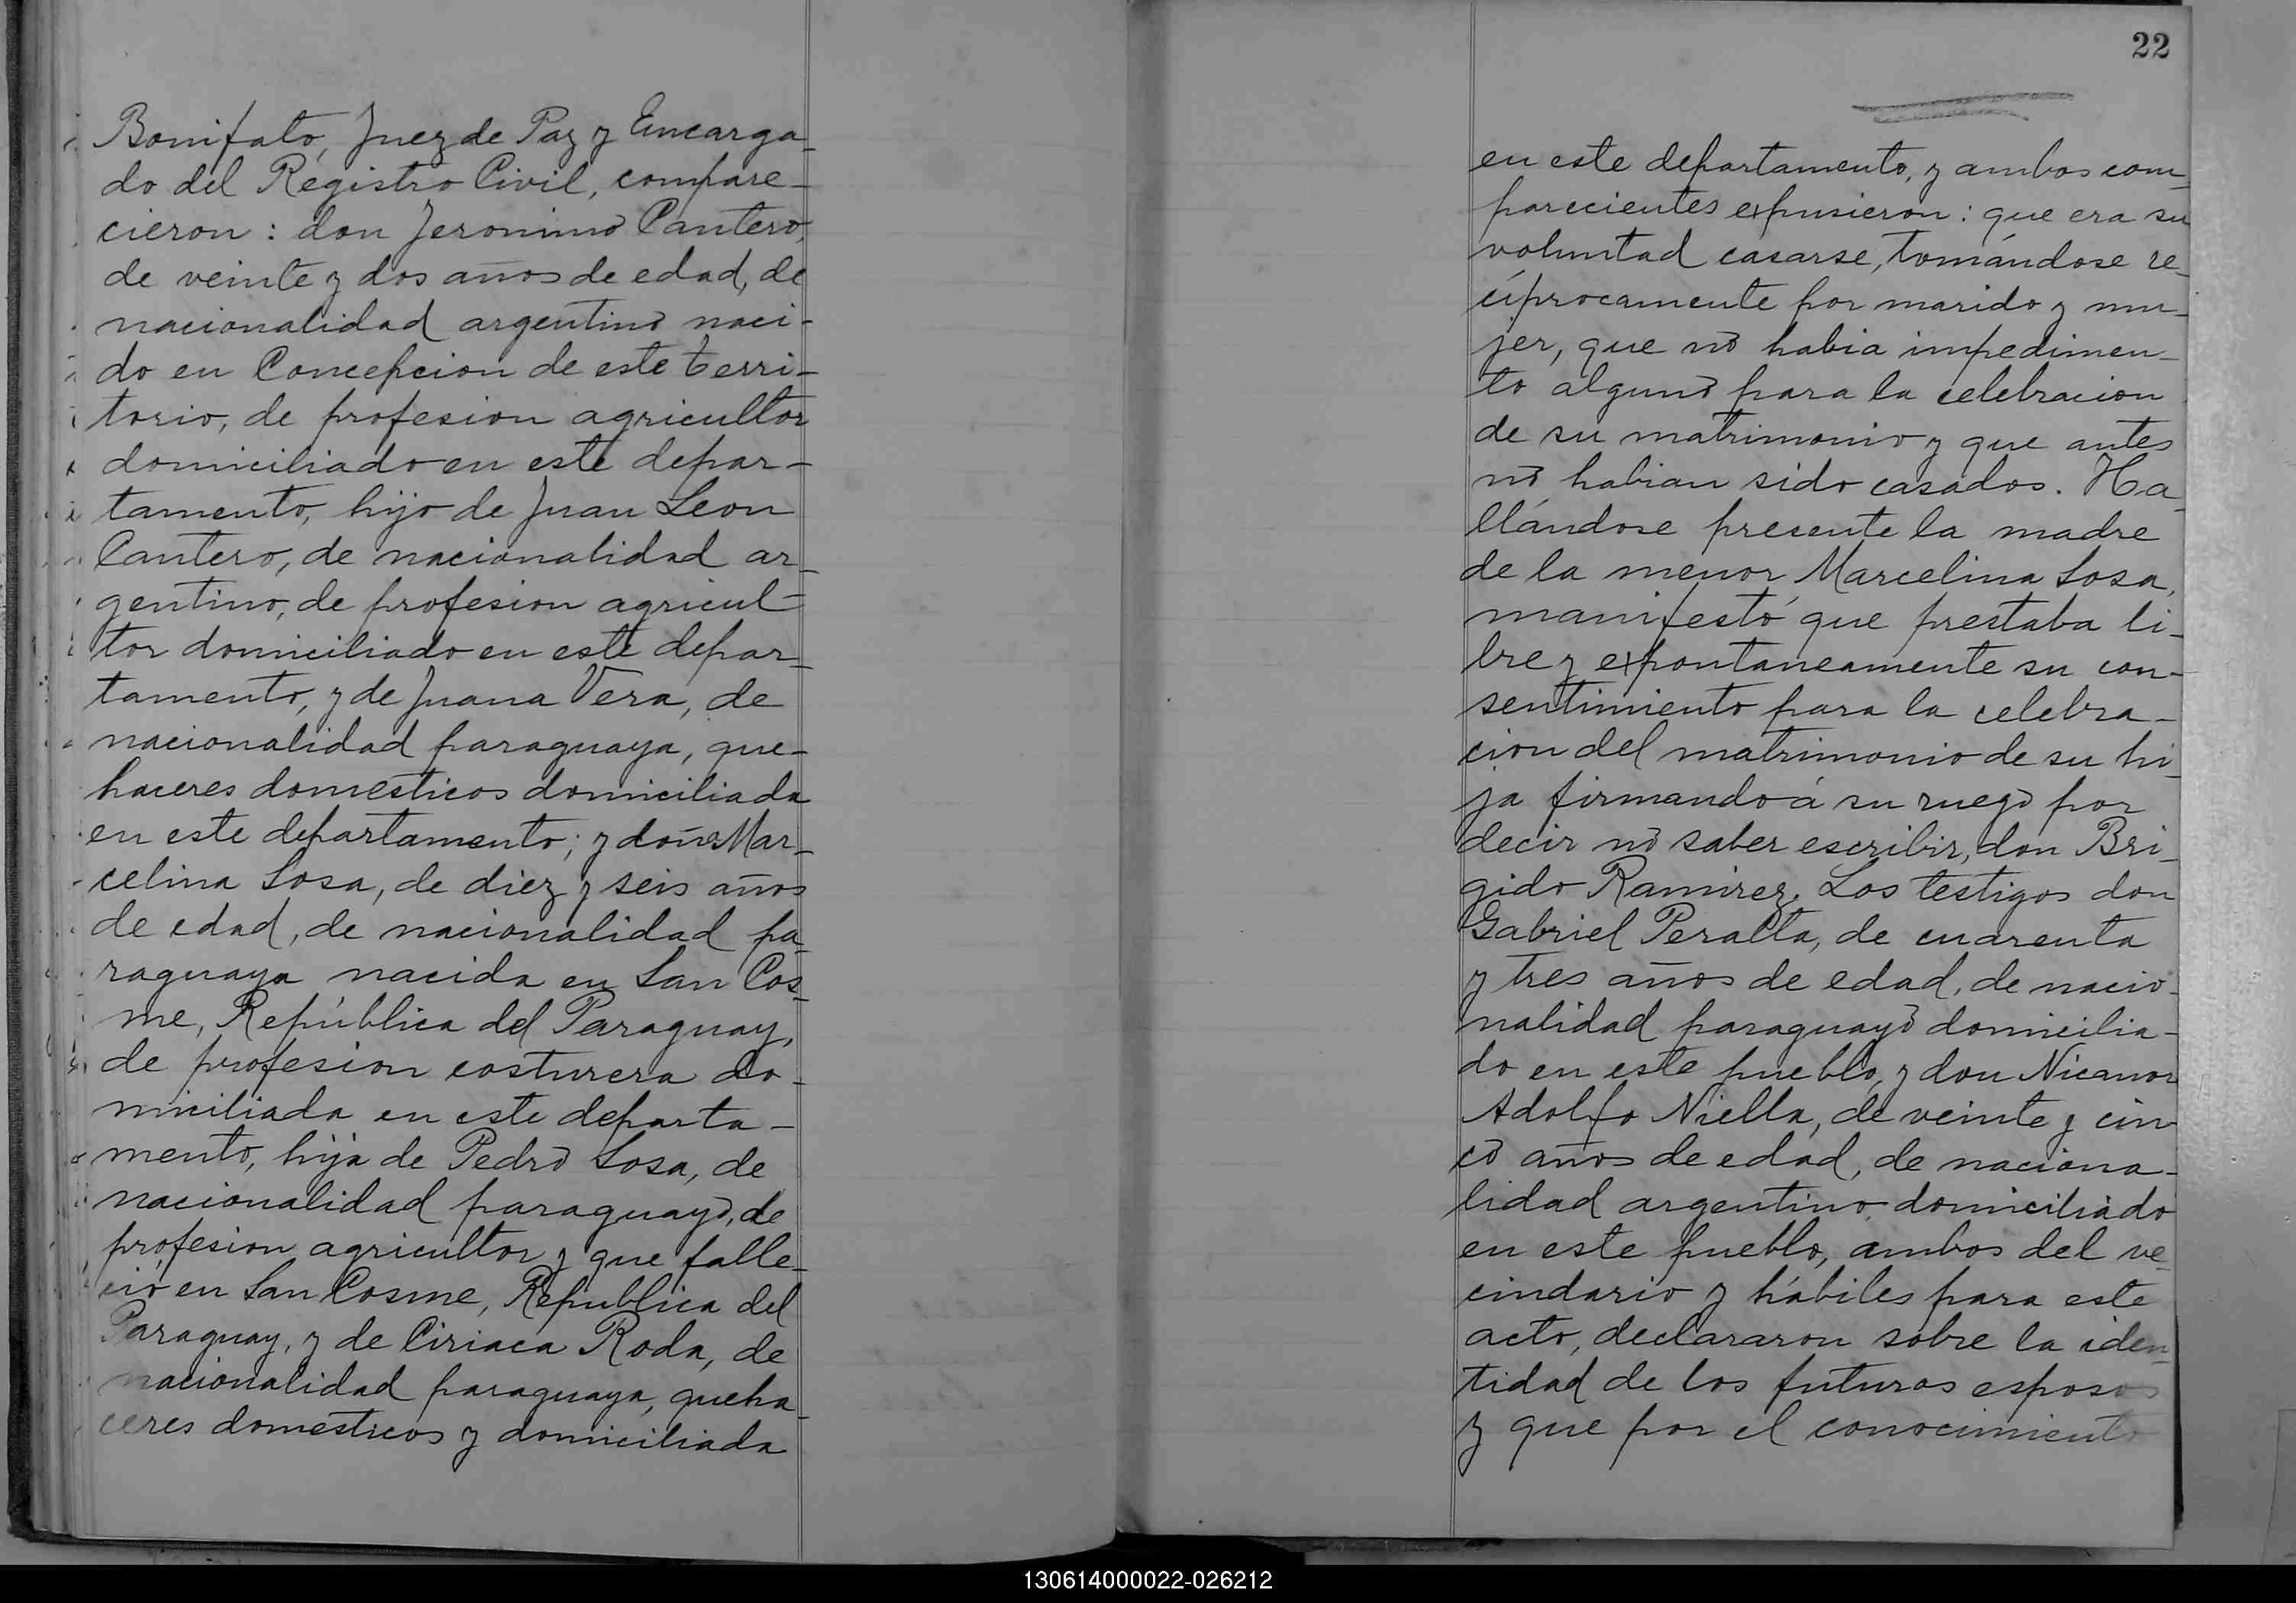 Bonifato, Juez de Paz y Encarga-
do del Registro Civil, compare-
cieron: don Jeronimo Cantero,
de veinte y dos años de edad, de
nacionalidad argentino naci-
do en Concepcion de este terri-
torio, de profesion agricultor
domiciliado en este depar-
tamento, hijo de Juan Leon
Cantero, de nacionalidad ar-
gentino, de profesion agricul-
tor domiciliado en este depar-
tamento, y de Juana Vera, de
nacionalidad paraguaya, que-
haceres domesticos domiciliada
en este departamento; y doña Mar-
celina Sosa, de diez y seis años
de edad, de nacionalidad pa-
raguaya nacida en San Cos-
me, República del Paraguay,
de profesion costurera do-
miciliada en este departa-
mento, hija de Pedro Sosa, de
nacionalidad paraguayo, de
profesion agricultor y que falle-
ció en San Cosme, Republica del
Paraguay, y de Ciriaca Roda, de
nacionalidad paraguaya, queha-
ceres domesticos y domiciliada
22
en este departamento, y ambos com-
parecientes expusieron: que era su
voluntad casarse, tomándose re-
cíprocamente por marido y mu-
jer, que no habia impedimen-
to alguno para la celebracion
de su matrimonio y que antes
no habian sido casados. Ha-
llándose presente la madre
de la menor Marcelina Sosa,
manifestó que prestaba li-
bre y expontaneamente su con-
sentimiento para la celebra-
cion del matrimonio de su hi-
ja firmando á su ruego por
decir no saber escribir, don Bri-
gido Ramirez. Los testigos don
Gabriel Peralta, de cuarenta
y tres años de edad, de nacio-
nalidad paraguayo domicilia-
do en este pueblo, y don Nicanor
Adolfo Niella, de veinte y cin-
co años de edad, de naciona-
lidad argentino domiciliado
en este pueblo, ambos del ve-
cindario y hábiles para este
acto, declararon sobre la iden-
tidad de los futuros esposos
y que por el conocimiento
130614000022-026212